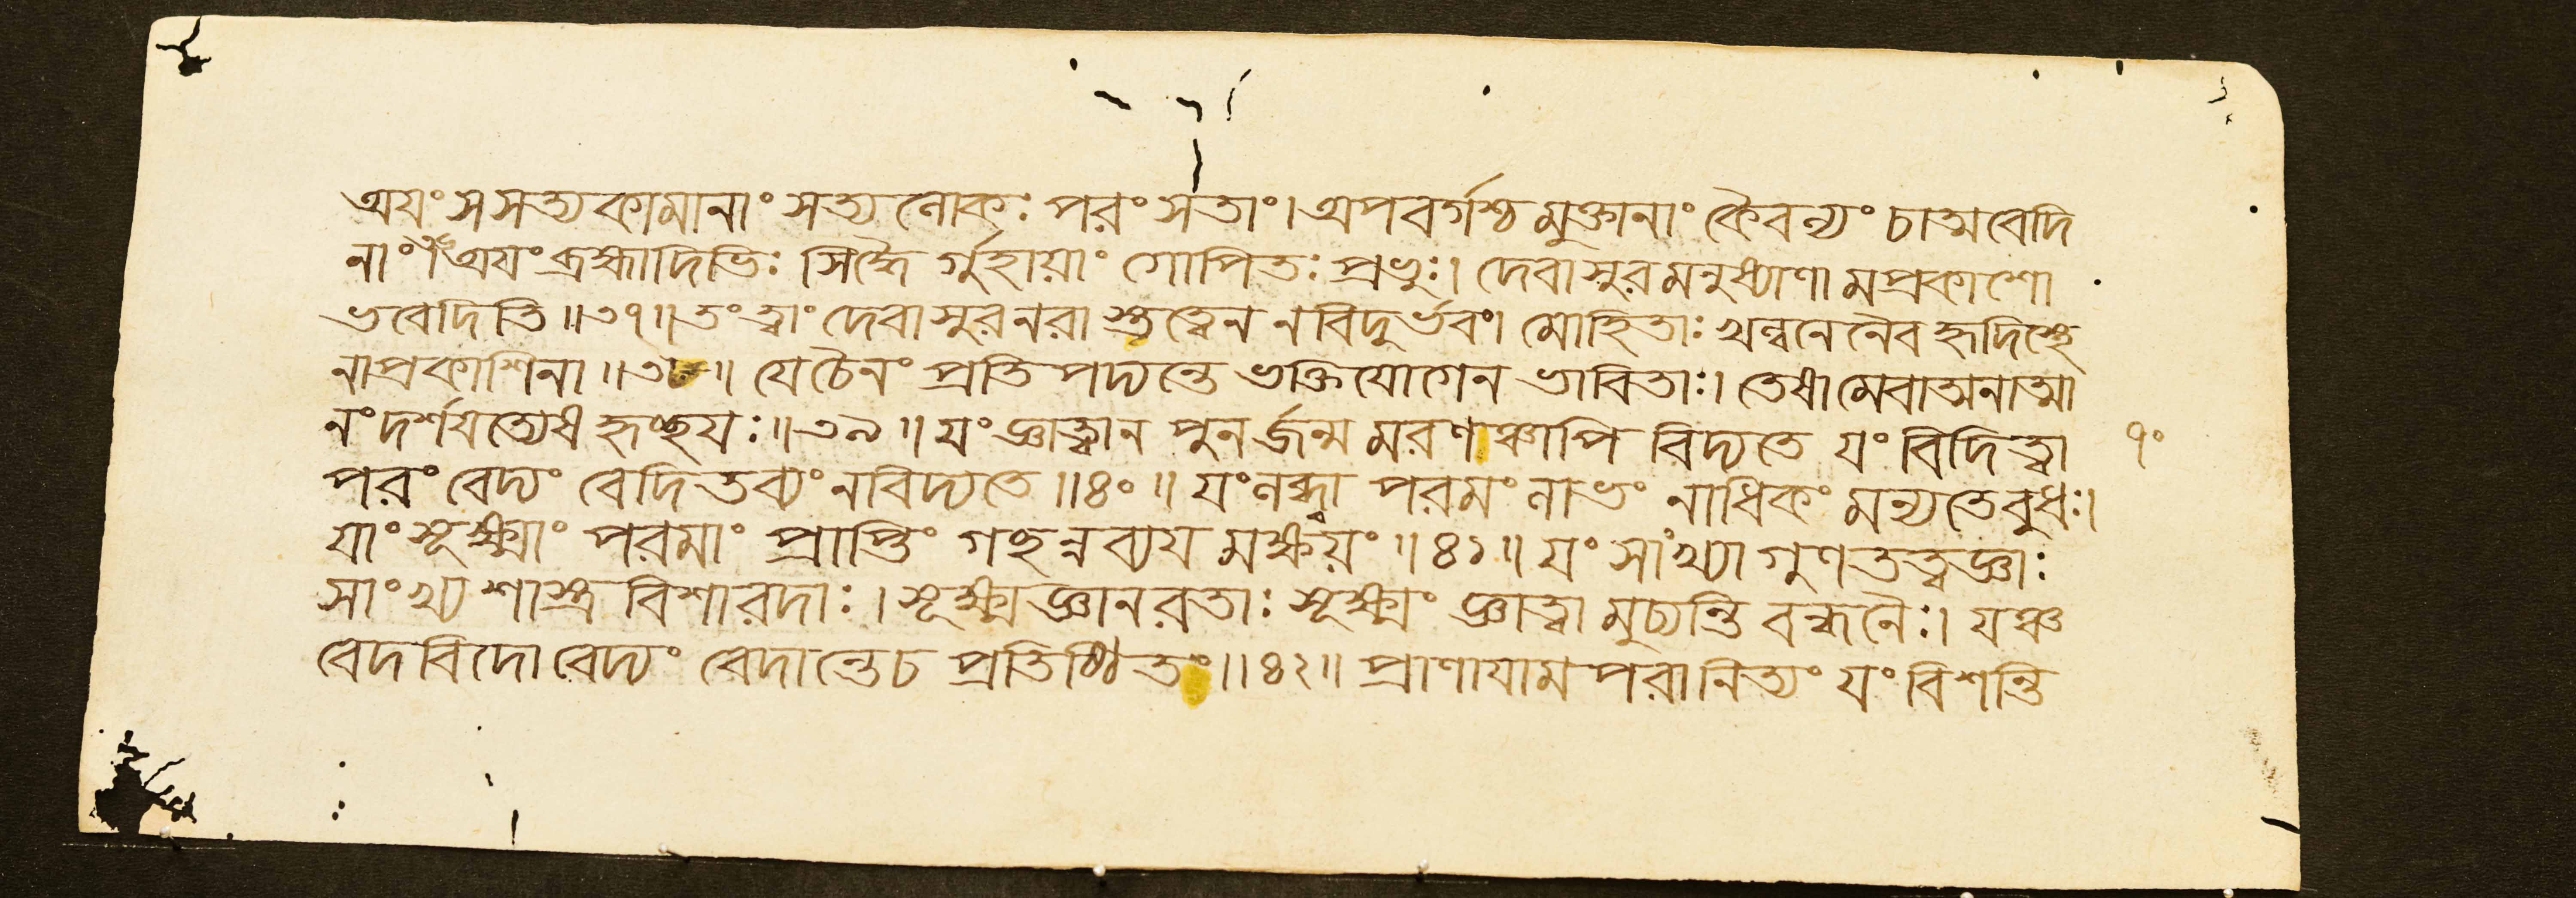 অযং স সত্যকামানাং সত্যলোকঃ পরং সতাং। অপবর্গশ্চ মুক্তানাং কৈবল্যং চাত্মবেদি
নাং। অযং ব্রহ্মাদিভিঃ সিদ্ধৈর্গুহায়াং গোপিতঃ প্রভুঃ। দেবাসুরমনুষ্যাণামপ্রকাশো
ভবেদিতি॥৩৭॥ তং ত্বাং দেবাসুরনরাস্তত্ত্বেন ন বিদুর্ভবং। মোহিতাঃ খল্বনেনৈব হৃদিস্থে
নাপ্রকাশিনা॥৩৮॥ যে চৈনং প্রতিপদ্যন্তে ভক্তিযোগেন ভাবিতাঃ। তেষামেবাত্মনাত্মা
নং দর্শযত্যেষ হৃচ্ছযঃ॥৩৯॥ যং জ্ঞাত্বা ন পুনর্জন্ম মরণঞ্চাপি বিদ্যতে যং বিদিত্বা ৭০
পরং বেদ্যং বেদিতব্যং ন বিদ্যতে॥৪০॥ যং লব্ধা পরমং লাভং নাধিকং মন্যতে বুধঃ।
যাং সূক্ষ্মাং পরমাং প্রাপ্তিং গচ্ছন্নব্যয মক্ষয়ং॥৪১॥ যং সাংখ্যা গুণতত্ত্বজ্ঞাঃ
সাংখ্যশাস্ত্র বিশারদাঃ। সূক্ষ্মজ্ঞানরতাঃ সূক্ষ্মং জ্ঞাত্বা মুচ্যন্তি বন্ধনৈঃ। যঞ্চ
বেদবিদো বেদ্যং বেদান্তে চ প্রতিষ্ঠিতং॥৪২॥ প্রাণাযামপরা নিত্যং যং বিশন্তি